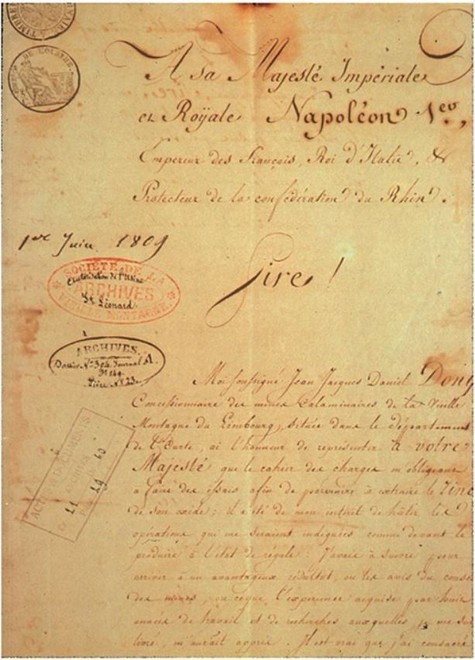 A sa Majesté Impériale
et Royale Napoléon 1er,
Empereur des Français, Roi d'Italie, &
Protecteur de la confédération du Rhin.
1er Juin 1809
Sire!
SOCIÉTÉ DE LA
ARCHIVES
St Léonard
VIEILLE MONTAGNE
ARCHIVES.
Moi soussigné Jean Jacques Daniel Dony
Concessionnaire des mines Calaminaires de la Vieille
Montagne du Limbourg, située dans le département
de l'Ourte, ai l'honneur de représenter à votre
Majesté que le cahier des charges m'obligeant
à faire des essais afin de parvenir à extraire le Zinc
de son oxide; il a été de mon intérêt de hâter les
opérations qui me seraient indiquées comme devant le
produire à l'état de régule. J'avais à suivre pour
arriver à un avantageux résultat, ou les avis du conseil
des mines, ou ce que l'expérience acquise par
années de travail et de recherches auxquelles je me suis
livré, m'aurait appris. Il est vrai que j'ai consacré